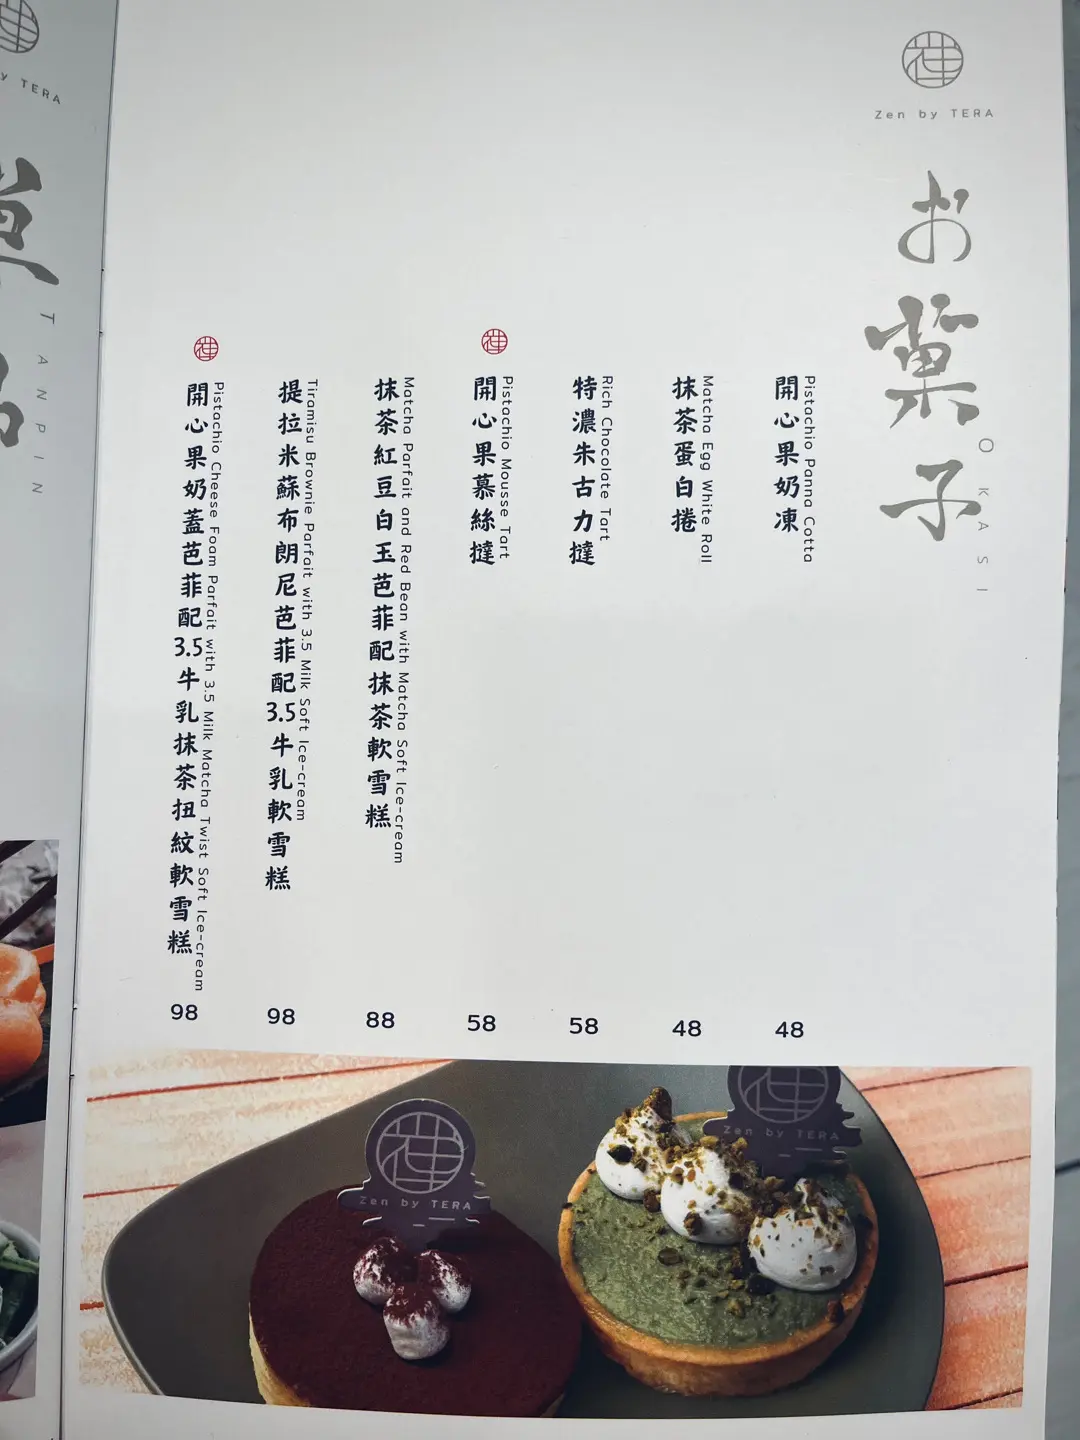 Zen by TERA
お菓子
OKASI
開心果奶凍
Pistachio Panna Cotta
48
抹茶蛋白捲
Matcha Egg White Roll
48
特濃朱古力撻
Rich Chocolate Tart
58
開心果慕絲撻
Pistachio Mousse Tart
58
抹茶紅豆白玉芭菲配抹茶軟雪糕
Matcha Parfait and Red Bean with Matcha Soft Ice-cream
88
提拉米蘇布朗尼芭菲配3.5牛乳軟雪糕
Tiramisu Brownie Parfait with 3.5 Milk Soft Ice-cream
98
開心果奶蓋芭菲配3.5牛乳抹茶扭紋軟雪糕
Pistachio Cheese Foam Parfait with 3.5 Milk Matcha Twist Soft Ice-cream
98
Zen by TERA
Zen by TERA
by TERA
TANPIN